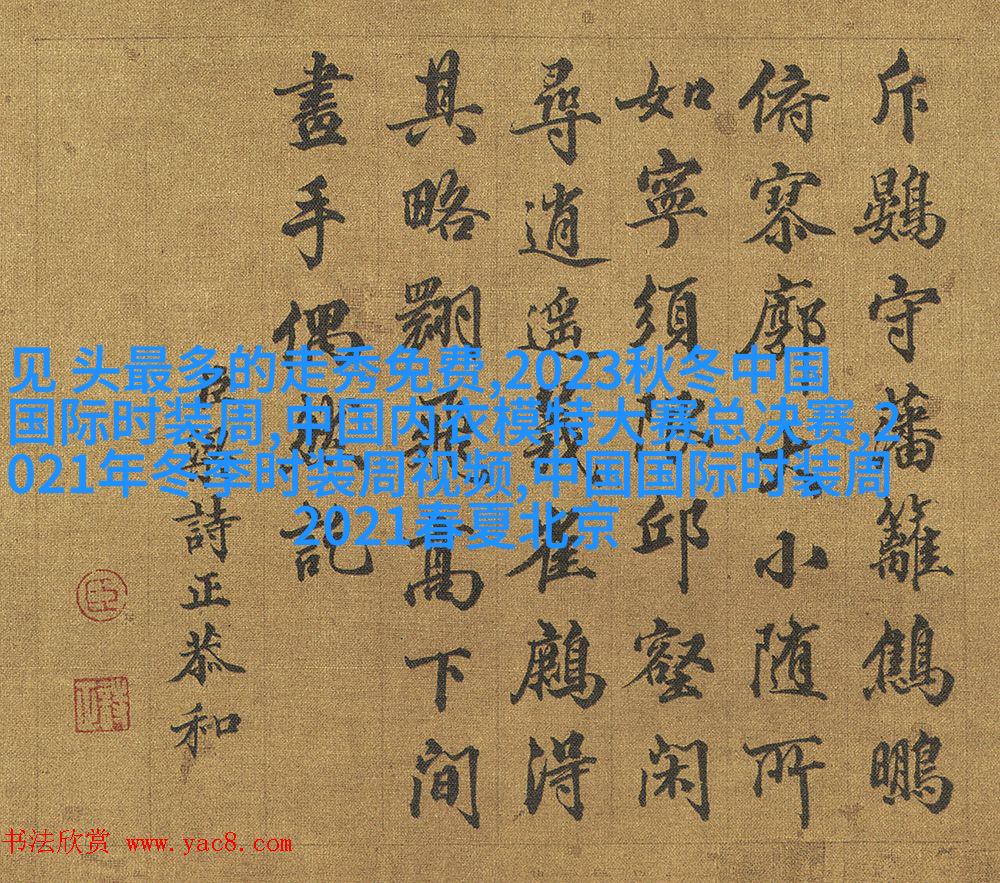 斥鷃守藩籬鷦鵬
俯寥廓大小随所
如寧須邱壑閑
尋逍遥義雀得
其略高下間
畫手偶記
臣梁詩正恭和
臣
见 头最多的走秀免费,2023秋冬中国
国际时装周,中国内衣模特大赛总决赛,2
021年冬季时装周视频,中国国际时装周
2021春夏北京
书法欣赏 www.yac8.com